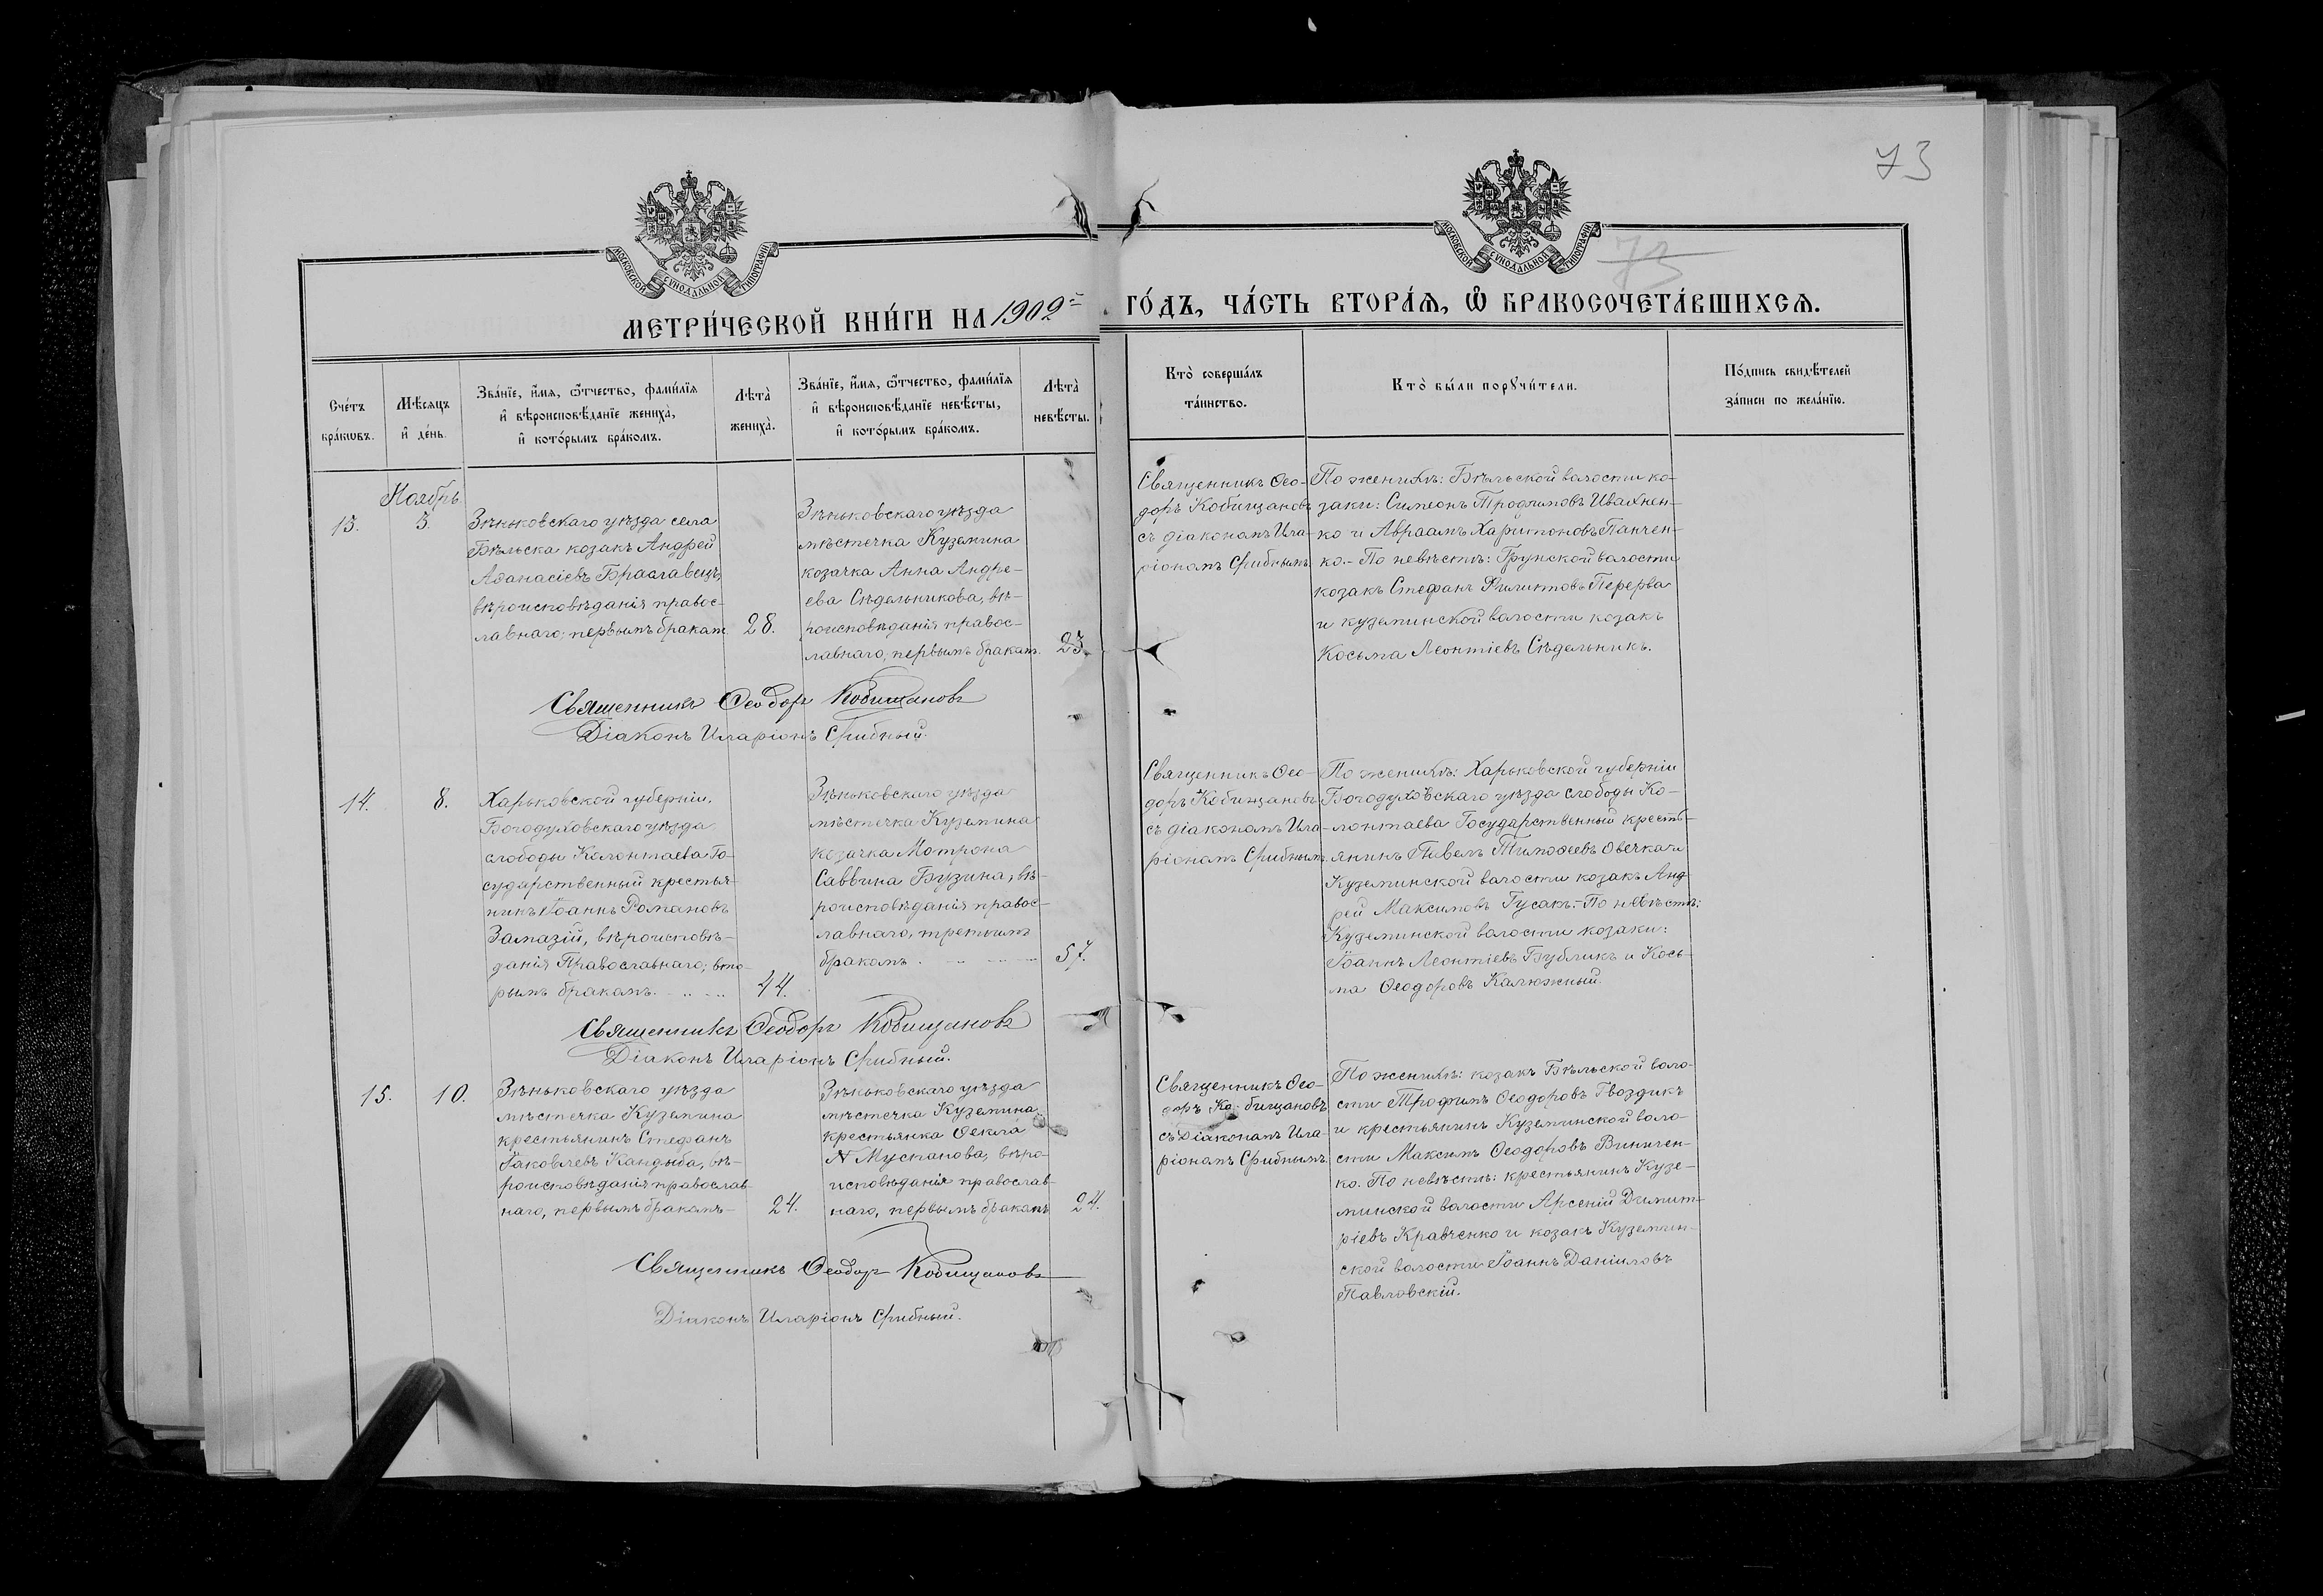 73
МОСКОВСКОЙ СѴНОДАЛЬНОЙ ТИПОГРАФІИ
МОСКОВСКОЙ СѴНОДАЛЬНОЙ ТИПОГРАФІИ
73
МЕТРИ́ЧЕСКОЙ КНИ́ГИ НА 1902й ГО́ДЪ, ЧА́СТЬ ВТОРА́Я, Ѡ҆ БРАКОСОЧЕТА́ВШИХСЯ.
Сче́тъ
бра́кѡвъ.
Мѣ́сяцъ
и҆ де́нь.
Зва́нїе, и҆́мя, ѻ҆́тчество, фами́лїя
и҆ вѣроисповѣ́данїе жениха̀,
и҆ кото́рымъ бра́комъ.
Лѣта̀
жениха̀.
Зва́нїе, и҆́мя, ѻ҆́тчество, фами́лїя
и҆ вѣроисповѣ́данїе невѣ́сты,
и҆ кото́рымъ бра́комъ.
Лѣта̀
невѣ́сты.
Кто̀ соверша́лъ
та́инство.
Кто̀ бы́ли порꙋчи́тели.
По́дпись свидѣ́телей
за́писи по жела́нїю.
Ноябрь
13.
5.
Зѣньковскаго уѣзда села
Бѣльска козакъ Андрей
Аѳанасіевъ Браславецъ,
вѣроисповѣданія правос-
лавнаго; первымъ бракомъ.
28.
Зѣньковскаго уѣзда
мѣстечка Куземина
козачка Анна Андре-
ева Сѣдельникова, вѣ-
роисповѣданія правос-
лавнаго; первымъ бракомъ.
23.
Священникъ Ѳео-
доръ Кобищановъ
съ діакономъ Ила-
ріономъ Срибнымъ.
По женихѣ: Бѣльской волости ко-
заки: Симеонъ Трофимовъ Ивахнен-
ко и Авраамъ Харитоновъ Панчен-
ко.- По невѣстѣ: Грунской волости
козакъ Стефанъ Филиповъ Перерва
и куземинской волости козакъ
Косьма Леонтіевъ Сѣдельникъ.
Священникъ Ѳеодоръ Кобищановъ
Діаконъ Иларіонъ Срибный.
14.
8.
Харьковской губерніи,
Богодуховскаго уѣзда
слободы Колонтаева Го-
сударственный крестья-
нинъ Іоаннъ Романовъ
Замазій, вѣроисповѣ-
данія Православнаго; вто-
рымъ бракомъ.
44.
Зѣньковскаго уѣзда
мѣстечка Куземина
козачка Мотрона
Саввина Бузина, вѣ-
роисповѣданія правос-
лавнаго, третьимъ
бракомъ.
57.
Священникъ Ѳео-
доръ Кобищановъ
съ діакономъ Ила-
ріономъ Срибнымъ.
По женихѣ: Харьковской губерніи
Богодуховскаго уѣзда слободы Ко-
лонтаева Государственный кресть-
янинъ Павелъ Тимоѳеевъ Овечка и
Куземинской волости козакъ Анд-
рей Максимовъ Гусакъ.- По невѣстѣ:
Куземинской волости козаки:
Іоаннъ Леонтіевъ Бубликъ и Кось-
ма Ѳеодоровъ Калюжный.
Священникъ Ѳеодоръ Кобищановъ
Діаконъ Иларіонъ Срибный.
15.
10.
Зѣньковскаго уѣзда
мѣстечка Куземина
крестьянинъ Стефанъ
Іаковлевъ Кандыба, вѣ-
роисповѣданія православ-
наго, первымъ бракомъ
24.
Зѣньковскаго уѣзда
мѣстечка Куземина
крестьянка Ѳекла
N Муспанова, вѣро-
исповѣданія православ-
наго, первымъ бракомъ
24.
Священникъ Ѳео-
доръ Ко-бищановъ
съ діакономъ Ила-
ріономъ Срибнымъ.
По женихѣ: козакъ Бѣльской воло-
сти Трофимъ Ѳеодоровъ Гвоздикъ
и крестьянинъ Куземинской воло-
сти Максимъ Ѳеодоровъ Виничен-
ко. По невѣстѣ: крестьянинъ Кузе-
минской волости Арсеній Димит-
ріевъ Кравченко и козакъ Куземин-
ской волости Іоаннъ Даніиловъ
Павловскій.
Священникъ Ѳеодоръ Кобищановъ
Діаконъ Иларіонъ Срибный.